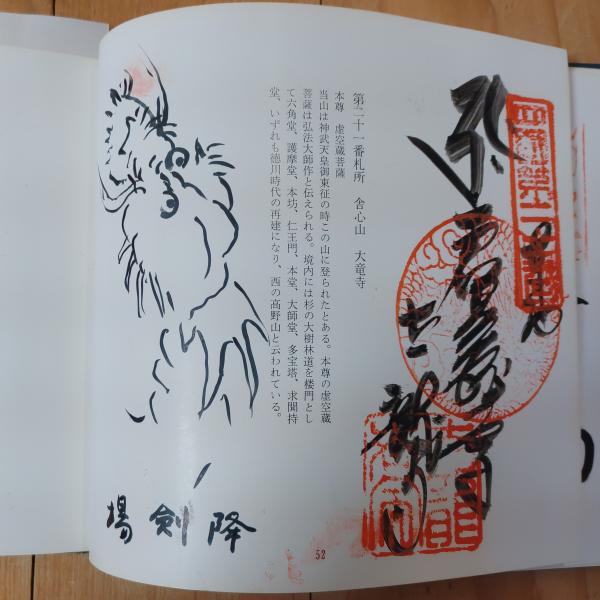 第二十一番札所　舎心山　大竜寺
本尊　虚空蔵菩薩
当山は神武天皇御東征の時この山に登られたとある。本尊の虚空蔵
菩薩は弘法大師作と伝えられる。境内には杉の大樹林道を楼門とし
て六角堂、護摩堂、本坊、仁王門、本堂、大師堂、多宝塔、求聞持
堂、いずれも徳川時代の再建になり、西の高野山と云われている。
降剣場
52